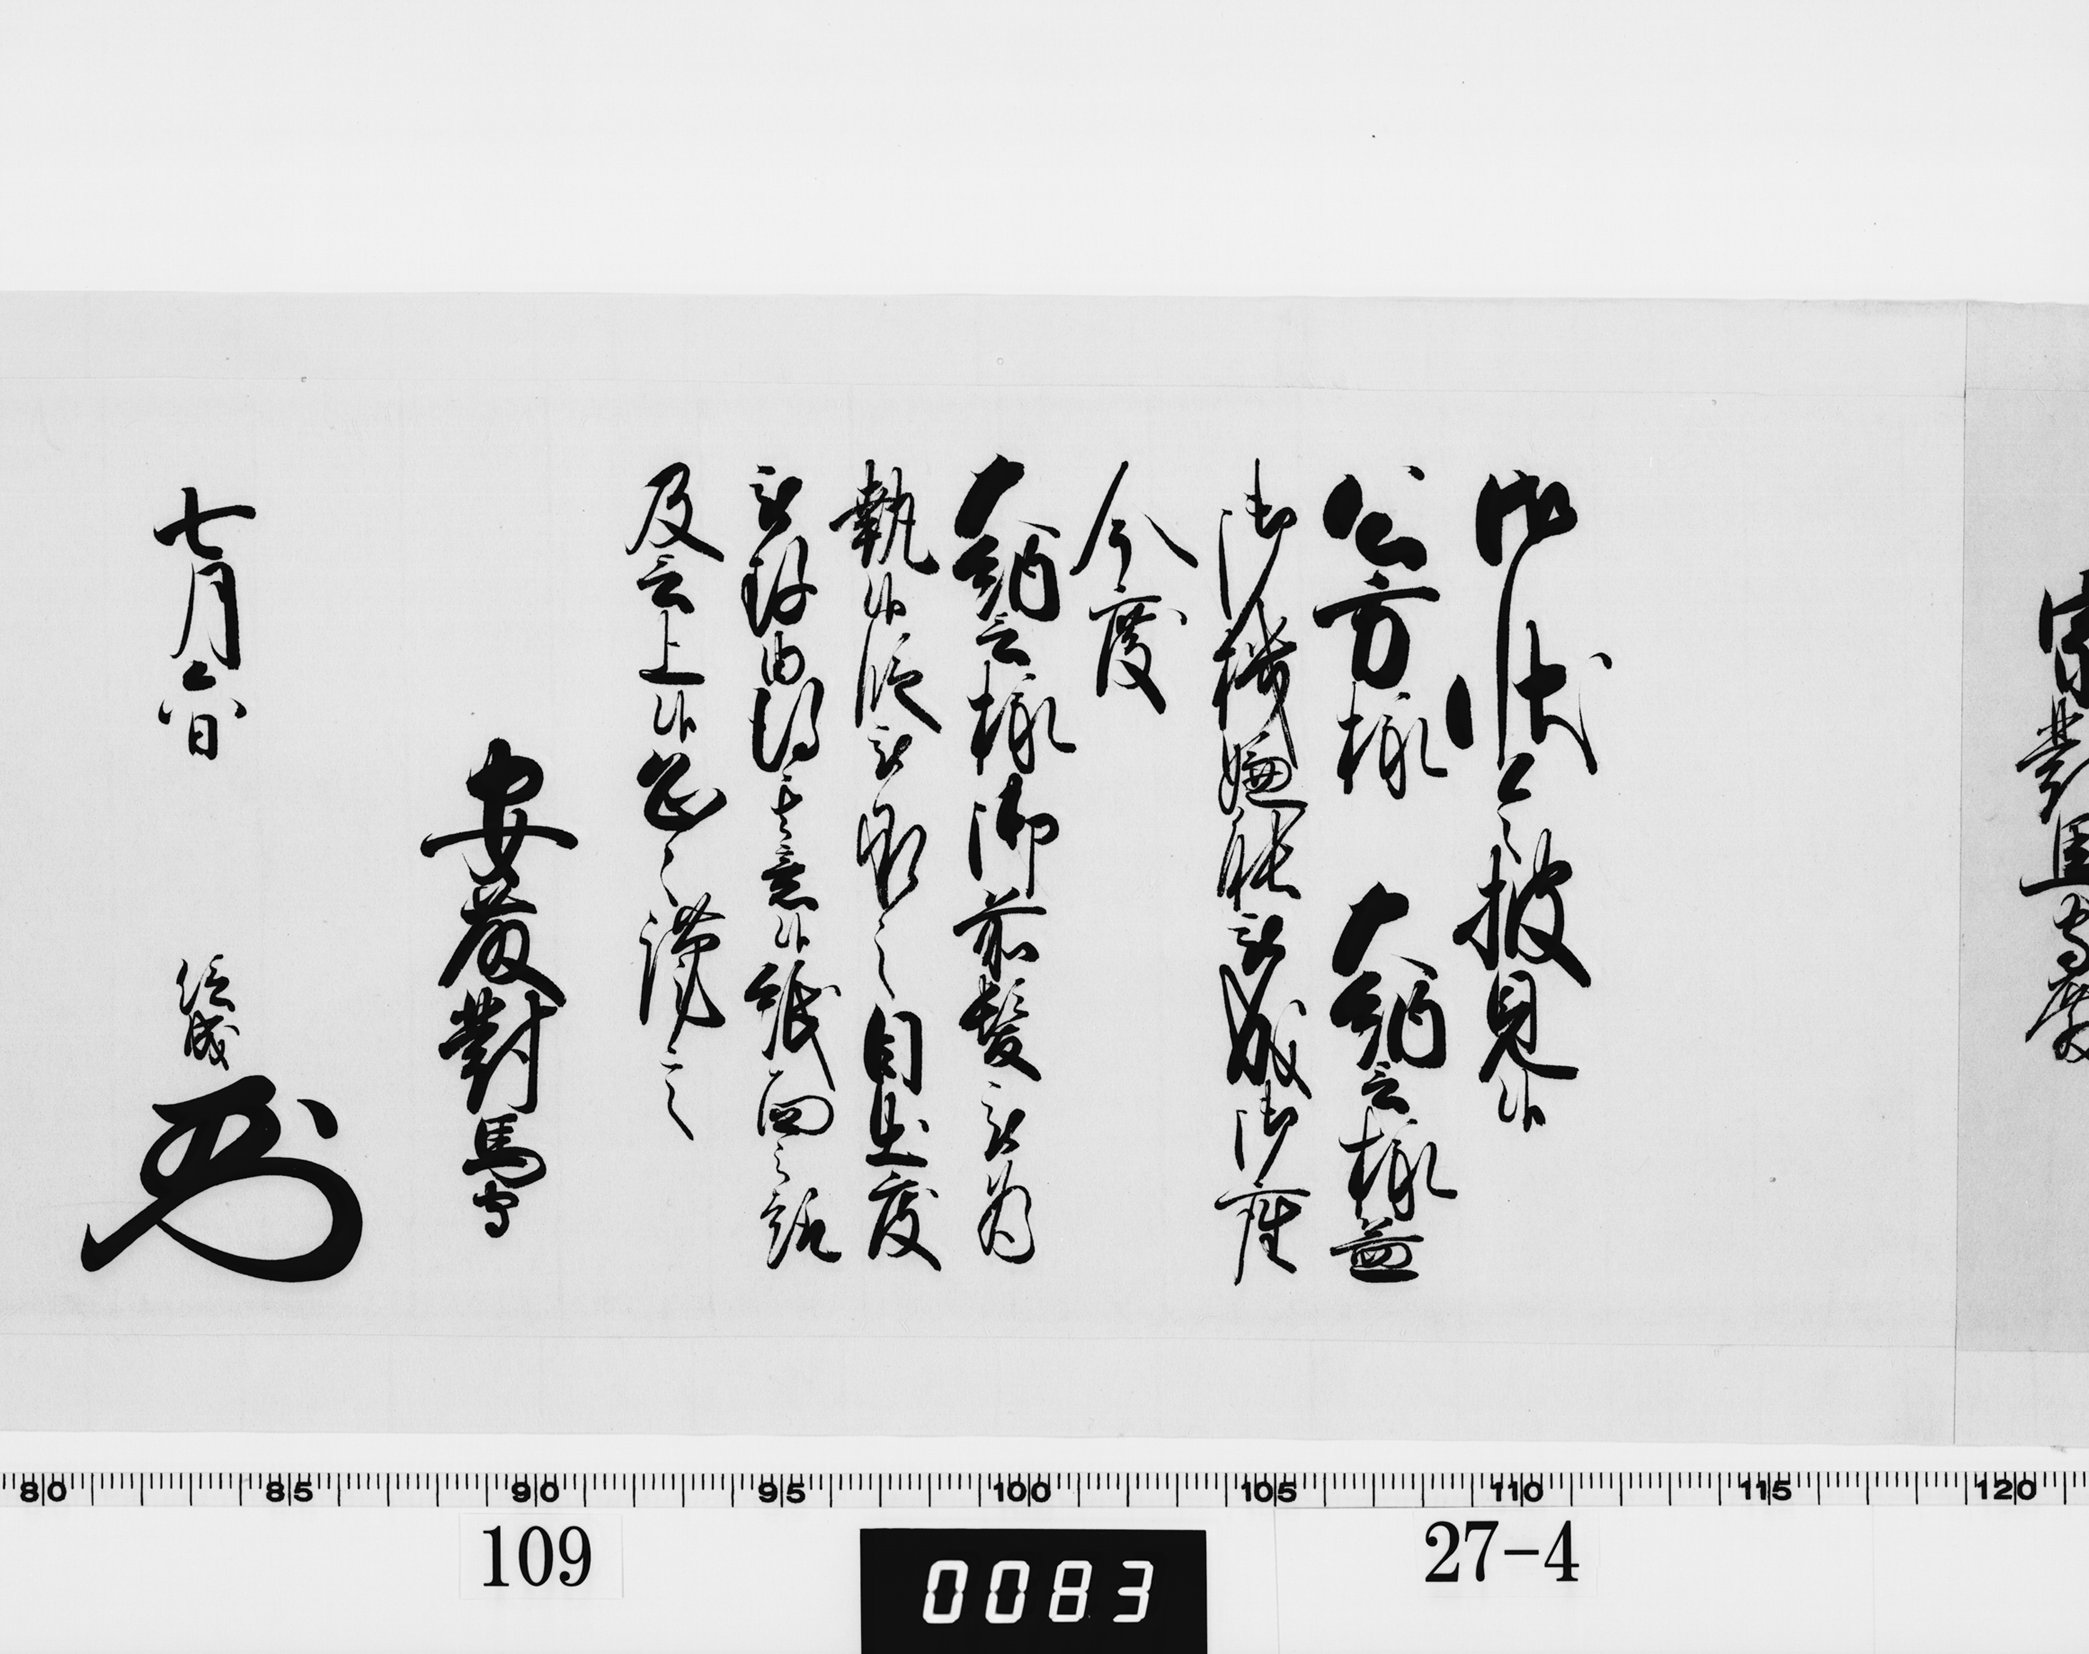 宗對馬守殿
御状令披見候
公方様 大納言様益
御機嫌能被成御座
今度
大納言様御前髪被為
執候段被承之目出度
被存由得其意候紙面之趣
及言上候恐々謹言
安藤對馬守
七月六日 信成
80 85 90 95 100 105 110 115 120
109 0083 27-4